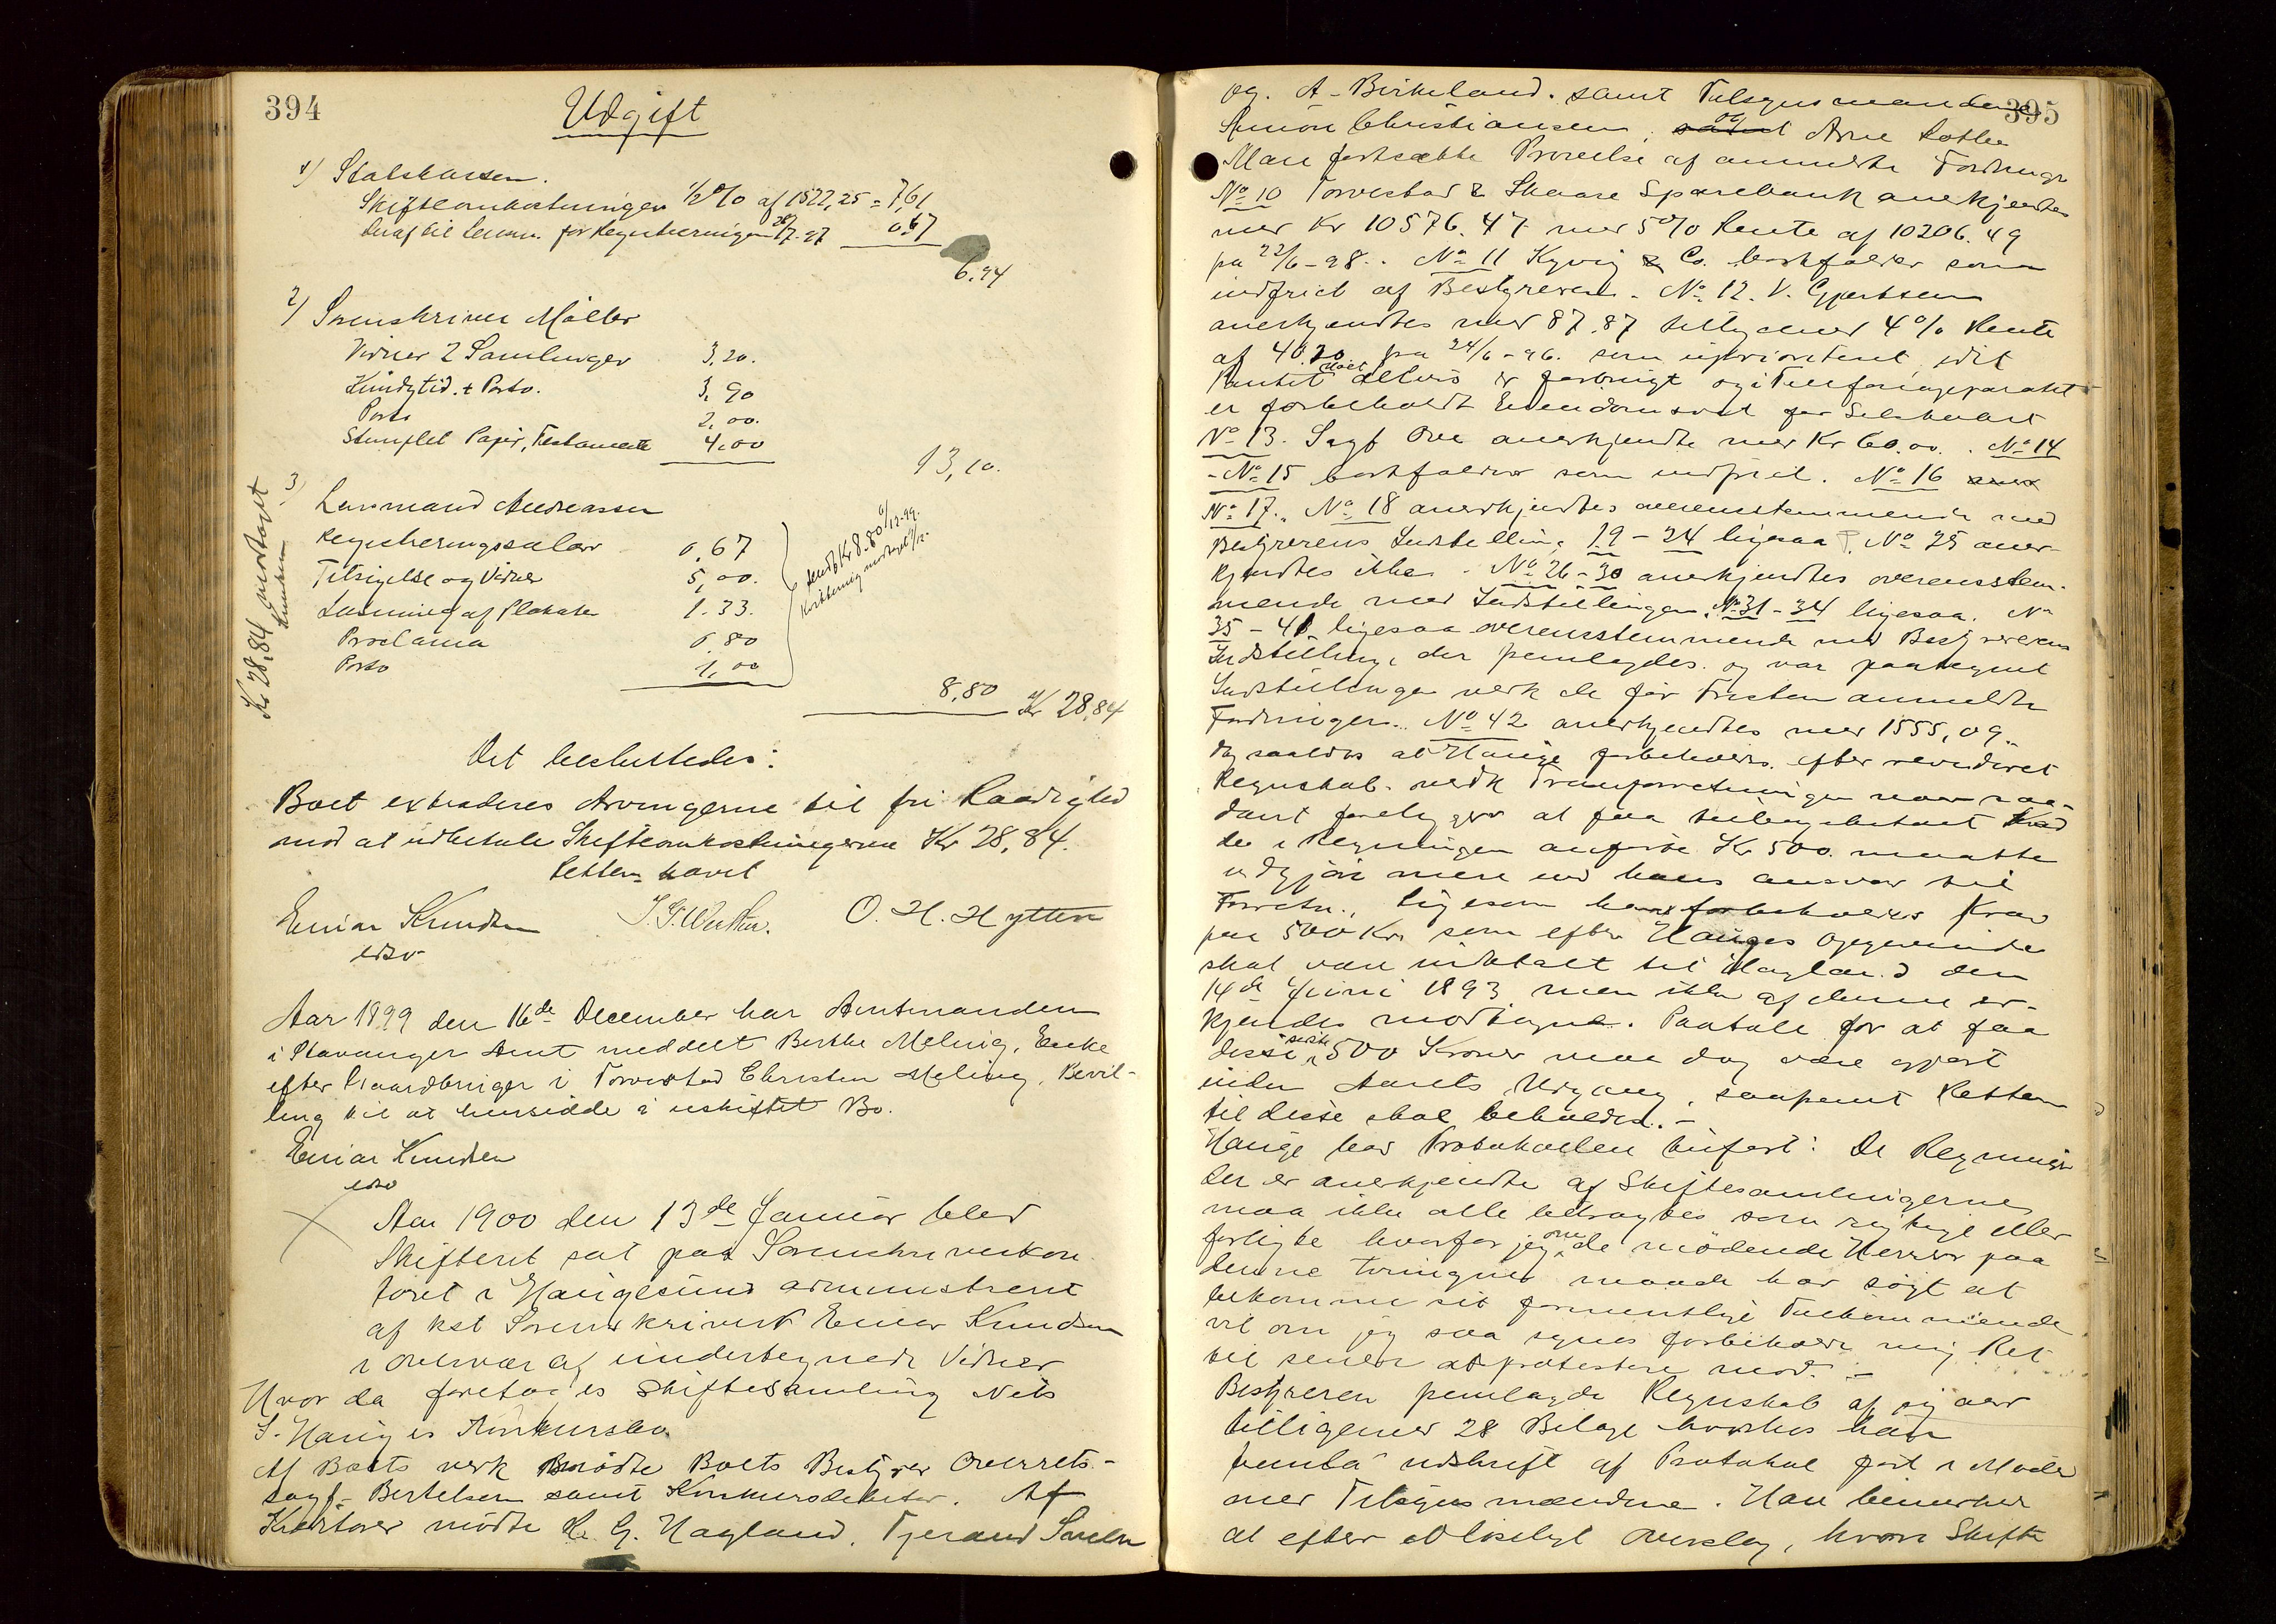 394
Udgift
1) Statskassen.
Skifteomkostninger 1/2 % af 1522,25 = 7,61
heraf til Lensm. for Registreringen 28/7-97 0.67
6.94
2) Sorenskriver Möller
Vidner 2 Samlinger 3,20.
Kundgtid. + Porto. 3,90
Porto 2,00.
Stemplet Papir, Testamente 4,00
13,10.
3) Lensmand Andreassen
Registreringssalær 0,67
Tilsigelse og Vidner 5,00.
Læsning af Plakater 1.33.
Proclama 0.80
Porto 1,00
sendt Kr 8.80 6/12-99.
Kvittering modtaget /12.
8,80 Kr 28,84
Kr 28,84 modtaget
Knudsen
Det besluttedes:
Boet extraderes Arvingerne til fri Raadighed
mod at udbetale Skifteomkostningerne Kr 28,84.
Retten hævet
Einar Knudsen O. H. Hytten
cst
Aar 1899 den 16de December har Amtmanden
i Stavanger Amt meddelt Berthe Meling, Enke
efter Gaardbruger i Torvestad Christen Meling, Bevil-
ling til at hensidde i uskiftet Bo.
Einar Knudsen
cst
Aar 1900 den 13de Januar blev
Skifteret sat paa Sorenskriverkon
toret i Haugesund administreret
af kst Sorenskriver Einar Knudsen
i Overvær af undertegnede Vidner
Hvor da foretoges Skiftesamling Nils
S. Hauges Konkursbo.
Af Boets vedk mödte Boets Bestyrer Overrets-
sagf. Bertelsen samt Konkursdebitor. Af
Kreditorer mödte K. G. Hagland, Tjerand
395
og A. Birkeland. samt Tilsynsmændene
Simon Christiansen, samt og Arne Lothe
Man fortsatte Prövelse af anmeldte Fordringer
No 10 Torvestad & Skaare Sparebank anerkjendtes
med Kr 10576.47 med 5% Rente af 10206.49
fra 22/6-98. No 11 Kyvig & Co. bortfalder som
indfriet af Bestyreren. No 12. V. Gjertsen
anerkjendtes med 87.87 tilligemed 4% Rente
af 40.20 fra 24/6-96. som uprioriteret, idet
Pantet delvis er forbrugt og i Telefonapparatet
er forbeholdt Eiendomsret for Selskabet
No 13. Sagf Ove anerkjendtes med Kr 60.00. No 14
- No 15 bortfalder som indfriet. No 16
No 17., No 18 anerkjendtes overensstemmende med
Bestyrerens Indstilling 19 - 24 ligesaa. No 25 aner-
kjendtes ikke. No 26 - 30 anerkjendtes overensstem-
mende med Indstillingen. No 31 - 34 ligesaa. No
35 - 41 ligesaa overensstemmende med Bestyrerens
Indstilling, der fremlagdes og var paategnet
Indstillinger vedk de för Fristen anmeldte
Fordringer. No 42 anerkjendtes med 1555,09.
dog saaledes at Hauge forbeholdes efter revideret
Regnskab vedk naar saa-
dant foreligger at faa tilbagebetalt hvad
de i Regningen anförte Kr 500 maatte
udgjöre mere end hans ansvar til
Forretn., ligesom han forbeholdes Krav
paa 500 Kr. som efter Hauges Opgivende
skal være indbetalt til Hagland den
14de Juni 1893 men ikke af denne er-
kjendes modtagne. Paatale for at faa
disse sidste 500 Kroner maa dog være gjort
inden Aarets Udgang, saafremt Retten
til disse skal beholdes. -
Hauge bad Protokollen tilfört: De Regninger
der er anerkjendte af Skiftesamlingerne
maa ikke alle betragtes som rigtige eller
forligte hvorfor jeg, om de mödende Herrer paa
denne tvungne maade har sögt at
bekomme sit formentlige Tilkommende
vil om jeg saa synes forbeholde mig Ret
til senere at protestere mod. -
Bestyreren fremlagde Regnskab af
tilligemed 28 Bilage hvorhos han
fremla' udskrift af Protokol fört i Möder
med Tilsynsmændene. Han bemerker
at efter et löseligt Overslag, hvori Skifte